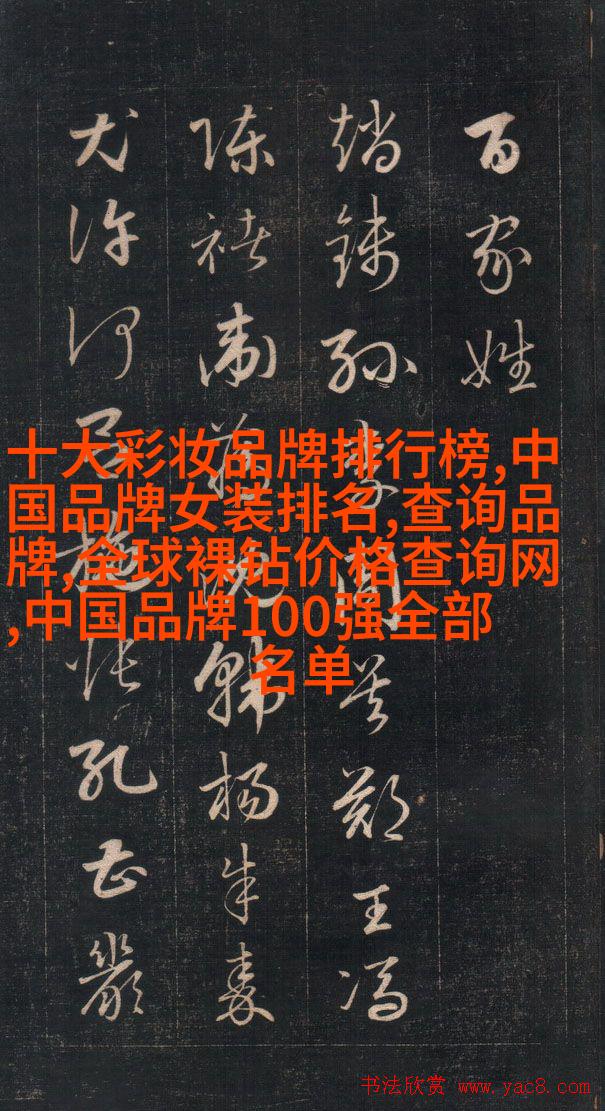 百家姓
趙錢孫李周吳鄭王馮
陳褚衛蔣沈韓楊朱秦
尤許何呂施張孔曹嚴
十大彩妆品牌排行榜,中
国品牌女装排名,查询品
牌,全球裸钻价格查询网
,中国品牌100强全部
名单
书法欣赏 www.yac8.com